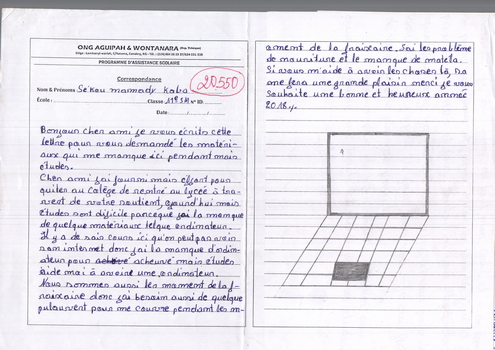 ONG AGUIPAH & WONTANARA
PROGRAMME D'ASSISTANCE SCOLAIRE
Correspondance
20550
Nom & Prénoms Sékou mamady Kaba
École : Classe 11e SM N° ID:
Date:
Bonjour cher ami je vous écrits cette
lettre pour vous demandé les matéri-
aux qui me manque ici pendant mais
études.
Cher ami j'ai fourni mais effort pour
quiter au Collège de rentré au lycée à tra-
vert de votre soutient, aujourd'hui mais
études sont dificile parceque j'ai la manque
de quelque matériaux telque ordinateur.
Il y a de sais cours ici qu'on peut pas voir
sam internet donc j'ai la manque d'ordin-
ateur pour acheuvé mais études
aide moi à avoire une ordinateur.
Nous sommes aussi les mament de la f-
raixaire donc j'ai besoin aussi de quelque
pulauvert pour me couvre pendant les m-
ament de la fraixaire. J'ai les problème
de nourriture et le manque de matela.
Si vous m'aide à avoir les chosen là, sa
me fera une grande plaisir merci je vous
souhaite une bonne et heureux année
2018